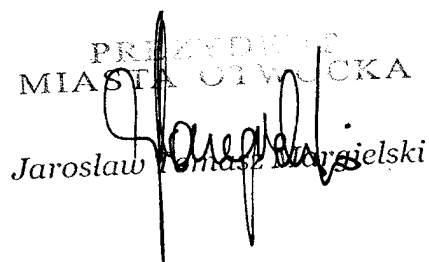 PREZYDENT
MIASTA OTWOCKA
Jarosław Tomasz Margielski